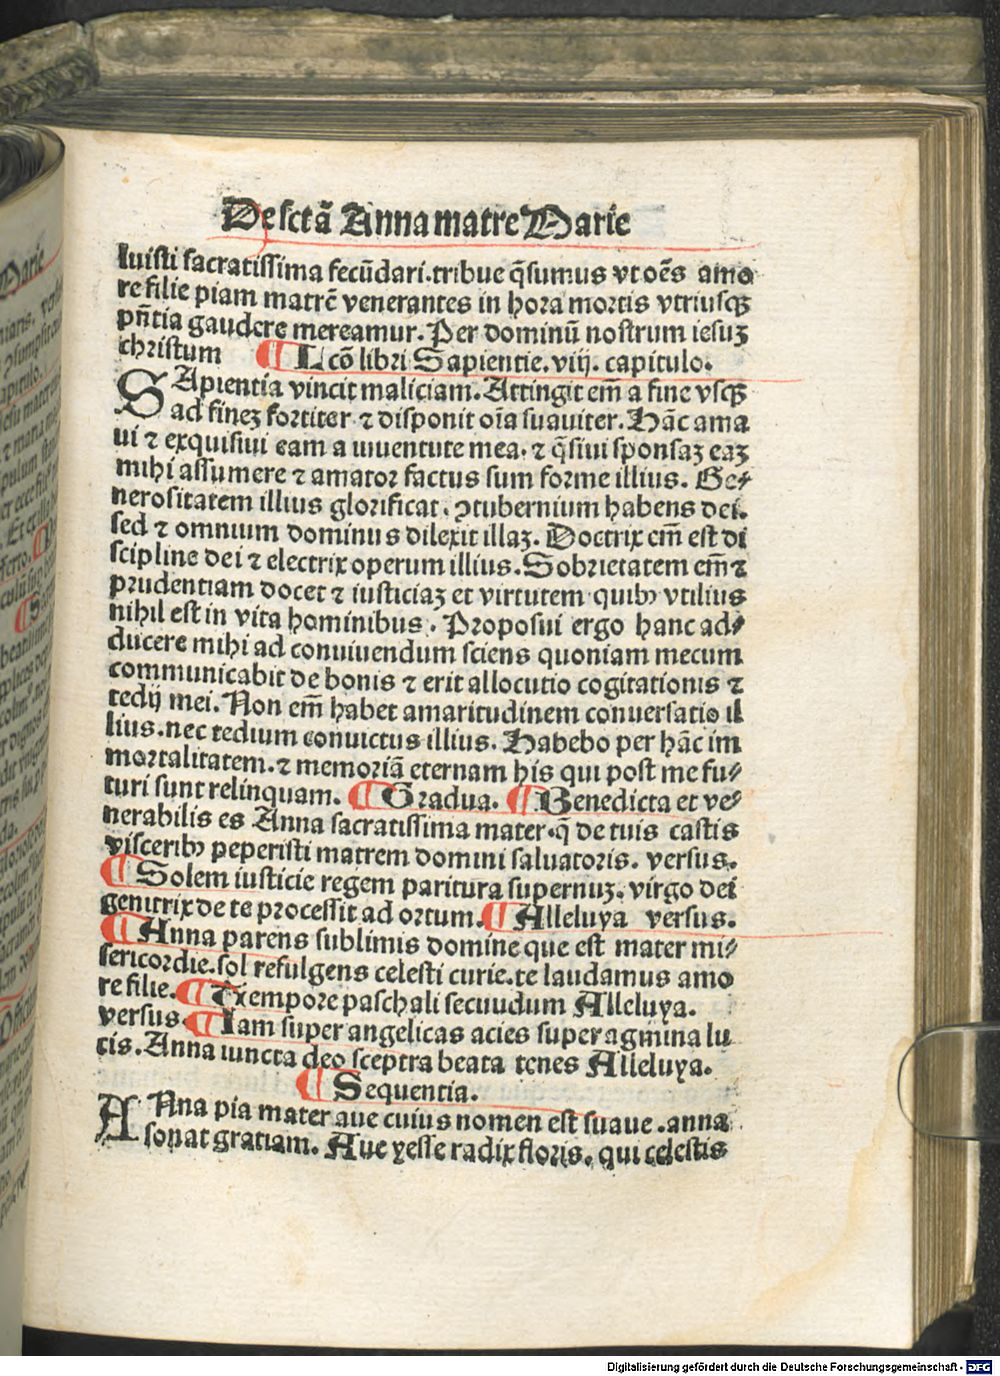 De sctā Anna matre Marie
luisti sacratissima fecūdari.tribue q̄sumus vt oēs amo
re filie piam matrē venerantes in hora mortis vtriusqꝫ
pn̄tia gaudere mereamur. Per dominū nostrum iesuꝫ
christum ¶ Lcō libri Sapientie.viij. capitulo.
SApientia vincit maliciam. Attingit em̄ a fine vsqꝫ
ad fineꝫ fortiter ⁊ disponit oīa suauiter. Hāc ama
ui ⁊ exquisiui eam a iuuentute mea. ⁊ q̄siui sponsaꝫ eaꝫ
mihi assumere ⁊ amator factus sum forme illius. Ge⸗
nerositatem illius glorificat. ꝯtubernium habens dei.
sed ⁊ omnium dominus dilexit illaꝫ. Doctrix em̄ est di
scipline dei ⁊ electrix operum illius. Sobrietatem em̄ ⁊
prudentiam docet ⁊ iusticiaꝫ et virtutem quibꝰ vtilius
nihil est in vita hominibus. Proposui ergo hanc ad⸗
ducere mihi ad conuiuendum sciens quoniam mecum
communicabit de bonis ⁊ erit allocutio cogitationis ⁊
tedij mei. Non em̄ habet amaritudinem conuersatio il
lius. nec tedium conuictus illius. Habebo per hāc im
mortalitatem. ⁊ memoriā eternam his qui post me fu⸗
turi sunt relinquam. ¶ Gradua. ¶ Benedicta et ve⸗
nerabilis es Anna sacratissima mater.q̄ de tuis castis
visceribꝰ peperisti matrem domini saluatoris. versus.
¶ Solem iusticie regem paritura supernuꝫ. virgo dei
genitrix de te processit ad ortum. ¶ Alleluya versus.
¶ Anna parens sublimis domine que est mater mi⸗
sericordie.sol refulgens celesti curie.te laudamus amo
re filie. ¶ Tempore paschali secuudum Alleluya.
versus. ¶ Iam super angelicas acies super agmina lu
cis. Anna iuncta deo sceptra beata tenes Alleluya.
¶ Sequentia.
ANna pia mater aue cuius nomen est suaue .anna
sonat gratiam. Aue yesse radix floris. qui celestis
Digitalisierung gefördert durch die Deutsche Forschungsgemeinschaft - DFG